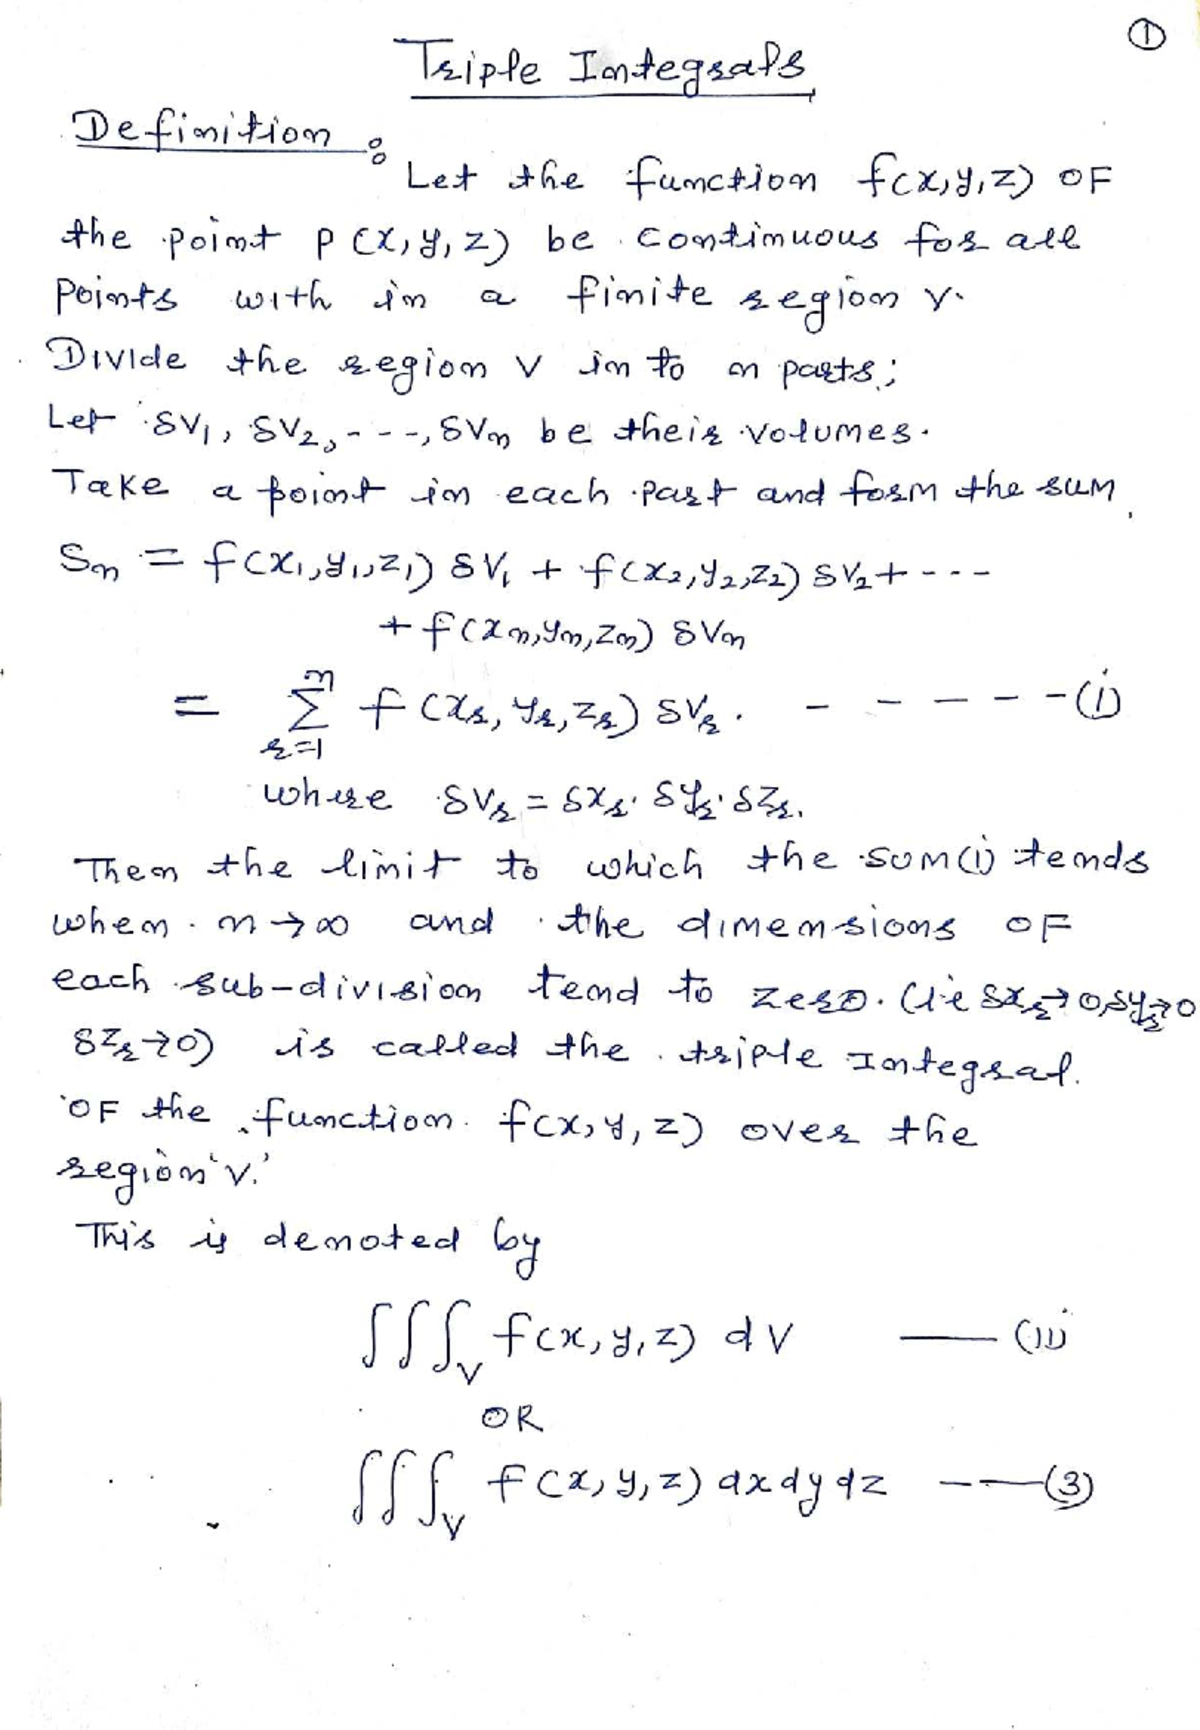 ①
Triple Integrals
Definition :
Let the function f(x,y,z) OF
the point P(x,y,z) be continuous for all
Points with in a finite region V.
Divide the region V in to n parts;
Let δV₁, δV₂,---,δVₙ be their volumes.
Take a point in each part and form the sum
Sₙ = f(x₁,y₁,z₁) δV₁ + f(x₂,y₂,z₂) δV₂ + ---
+ f(xₙ,yₙ,zₙ) δVₙ
= Σⁿᵣ₌₁ f(xᵣ, yᵣ, zᵣ) δVᵣ. - - - - - (i)
where δVᵣ = δxᵣ. δyᵣ. δzᵣ.
Then the limit to which the sum (i) tends
when n → ∞ and the dimensions OF
each sub-division tend to zero. (i.e δxᵣ→0,δyᵣ→0
δzᵣ→0) is called the triple Integral.
OF the function f(x,y,z) over the
region 'V.'
This is denoted by
∭_V f(x,y,z) dV — (ii)
OR
∭_V f(x,y,z) dxdydz --—(3)